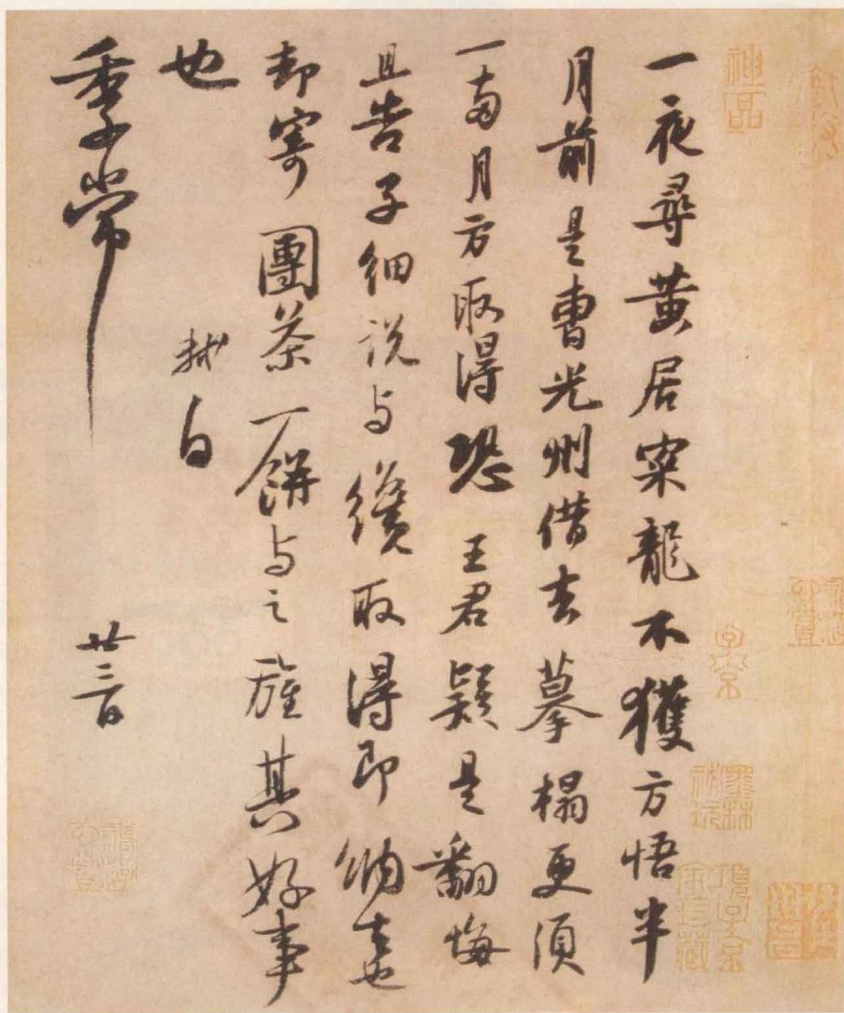 一夜尋黃居寀龍不獲方悟半
月前是曹光州借去摹搨更須
一兩月方取得恐王君疑是翻悔
且告子細說与纔取得即納去也
却寄團茶一餅与之旌其好事
也
軾白
季常
廿三日
神品
子京
項子京家珍藏